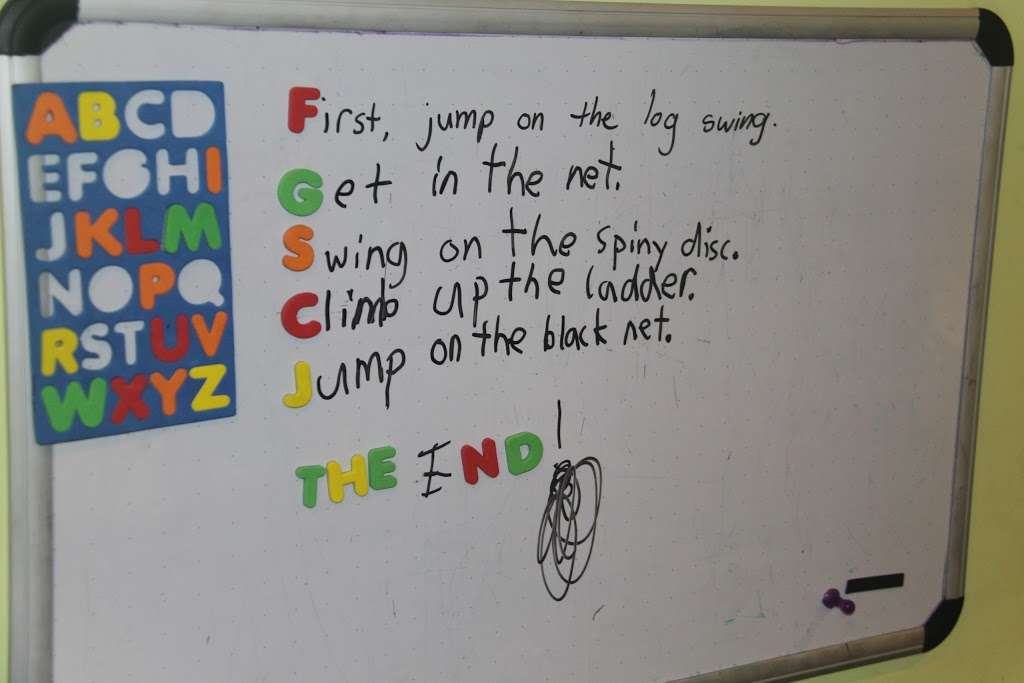 ABCD
EFGHI
JKLM
NOPQ
RSTUV
WXYZ
First, jump on the log swing.
Get in the net.
Swing on the spiny disc.
Climb up the ladder.
Jump on the black net.
THE END!